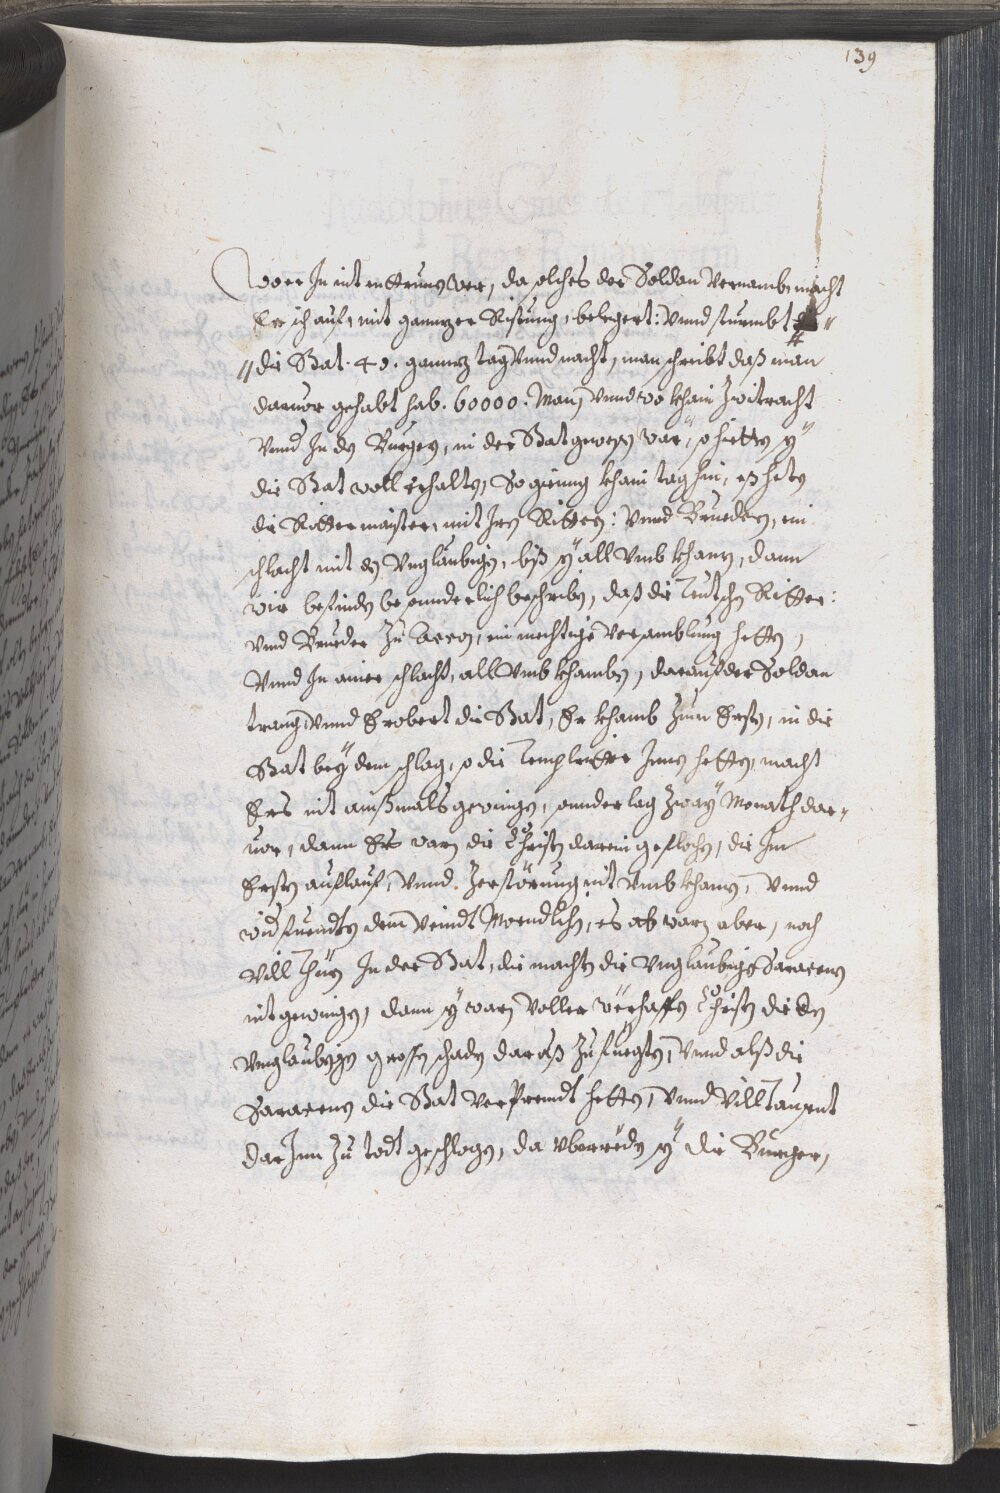 139
vor Jn nit rettung wer, da solches der Soldan vernamb macht
Er sich auf, mit gannzer Ristung, belegert: vnnd sturmbt
die Stat. 40. gannz tag vnnd nacht, man schreibt daß man
daruor gehabt hab. 60000. Man vnnd wo khain zwitracht
vnnd Jn den Burgern, in der Stat gwesen wär, so hietten sy
die Stat woll erhalten, So gieng khain tag hin, es heten
die Rittermaister, mit Jren Rittern: vnnd Bruedern, ein
schlacht mit den Vnglaubigen, biß sy all vmb khamen, dann
wir befinden besonnderlich beschriben, daß die Teutschen Ritter:
vnnd Brueder zu Accon, ein mechtige versamblung hetten,
vnnd Jn ainer schlacht, all vmb khamben, darauf der Soldan
trang, vnnd Erobert die Stat, Er khamb zum Ersten, in die
Stat bey dem schlag, so die Templ ritter Jnnen hetten, macht
Ers nit ainßmals gewingen, sonnder lag zway Monath dar-
uor, dann Es warn die Christen darein geflochen, die Jm
Ersten auflauf, vnnd Zerstörung nit vmb khamen, vnnd
widstuendten dem veindt Moendlichen, es warn aber, noch
vill Thürn Jn der Stat, die machten die Vnglaubigen Saracenen
nit gewingen, dann sy warn voller werhaffter Christen die den
Vnglaubigen grossen schaden darauß zufuegten, vnnd alß die
Saracenen die Stat verPrendt hetten, vnnd vill Tausent
dar Jnn zu todt geschlagen, da vberreden sy die Burger,